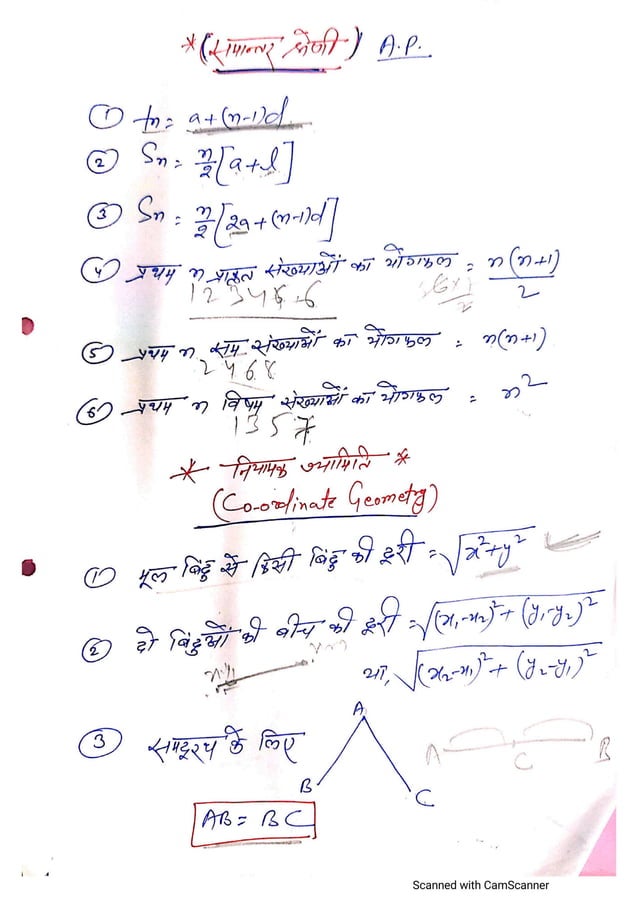 * (समान्तर श्रेणी) A.P.
① tn = a+(n-1)d
② Sn = n/2 [a+l]
③ Sn = n/2 [2a+(n-1)d]
④ प्रथम n प्राकृत संख्याओं का योगफल = n(n+1)/2
1 2 3 4 5 - 6
⑤ प्रथम n सम संख्याओं का योगफल = n(n+1)
2 4 6 8
⑥ प्रथम n विषम संख्याओं का योगफल = n²
1 3 5 7
* नियामक ज्यामिति *
(Co-ordinate Geometry)
① मूल बिंदु से किसी बिंदु की दूरी = √x²+y²
② दो बिंदुओं की बीच की दूरी = √(x₁-x₂)²+(y₁-y₂)²
या, √(x₂-x₁)²+(y₂-y₁)²
③ समदूरस्थ के लिए
A
B C
A C B
AB = BC
Scanned with CamScanner